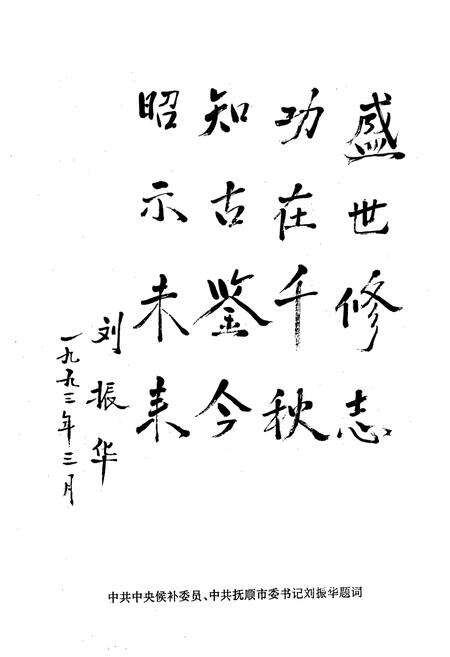 盛世修志
功在千秋
知古鉴今
昭示未来
刘振华
一九九三年三月
中共中央候补委员、中共抚顺市委书记刘振华题词